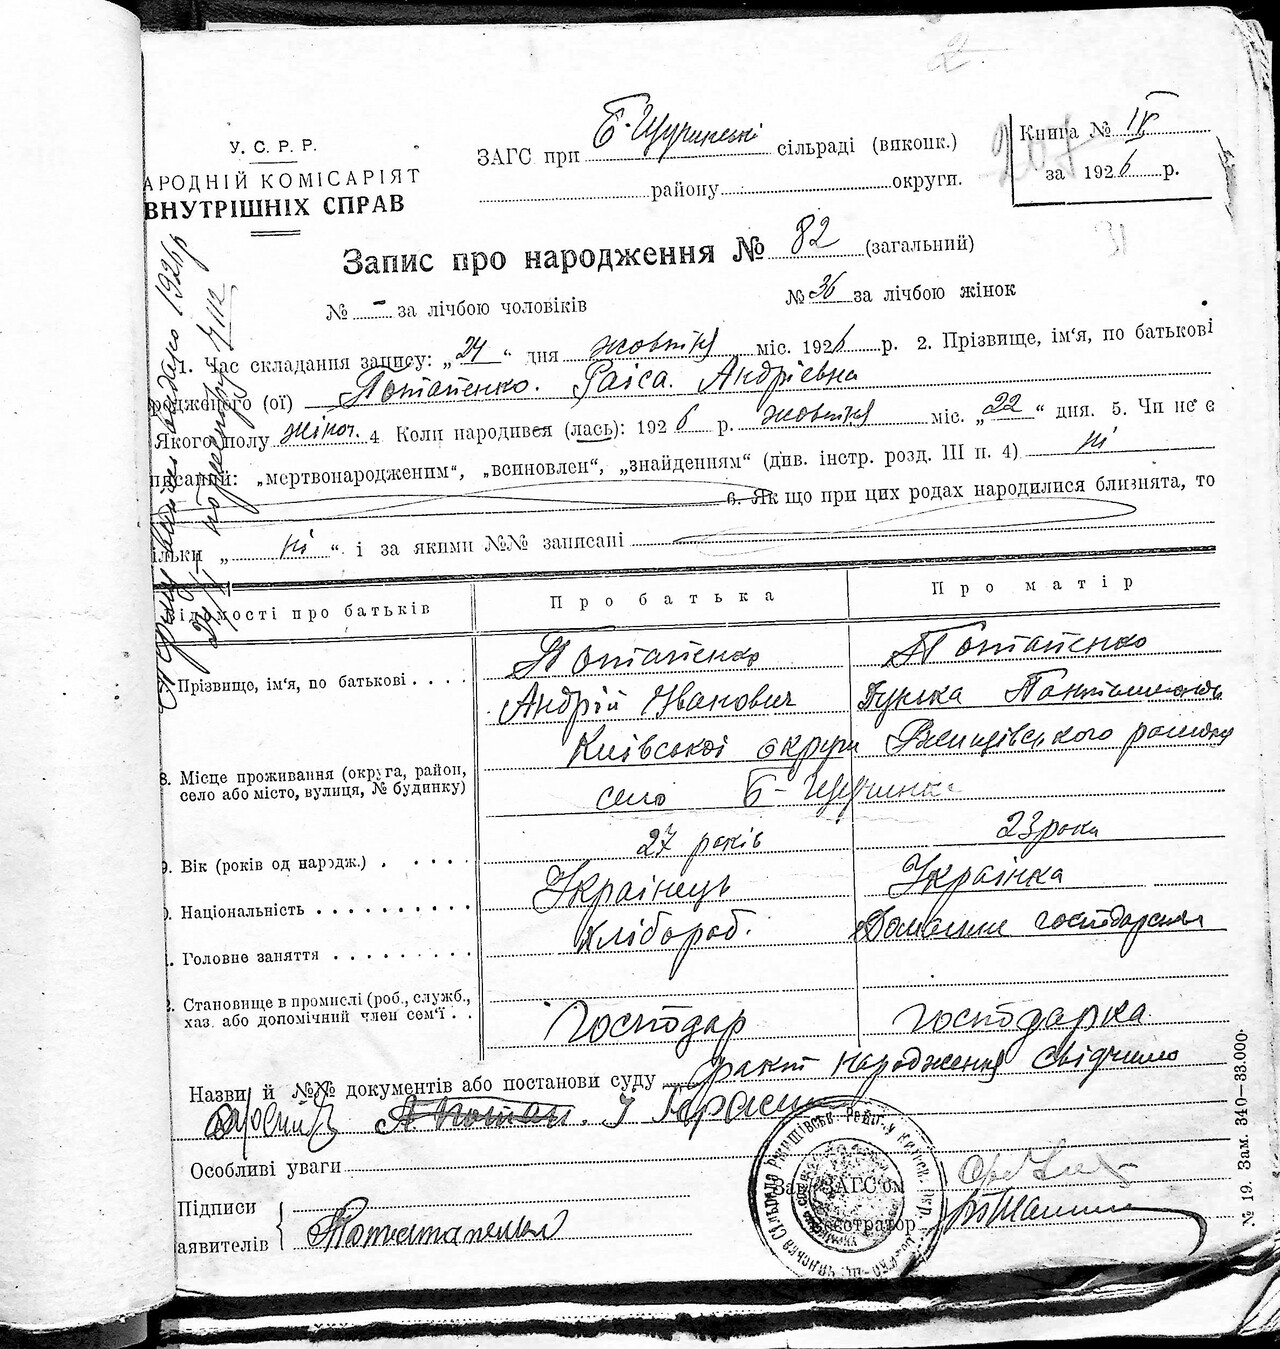 2.
У. С. Р. Р.
АРОДНІЙ КОМІСАРІЯТ
ВНУТРІШНІХ СПРАВ
ЗАГС при Б-Щучинські сільраді (виконк.)
району округи.
Книга № ІV
за 1926 р.
207
31
Запис про народження № 82 (загальний)
№ - за лічбою чоловіків № 36 за лічбою жінок
1. Час складання запису: „24“ дня жовтня міс. 1926 р. 2. Прізвище, ім'я, по батькові
родженого (ої) Потапенко. Раіса. Андріевна
Якого полу жіноч. 4 Коли народився (лась): 1926 р. жовтня міс. „22“ дня. 5. Чи не є
писаний: „мертвонародженим“, „всиновлен“, „знайденням“ (див. інстр. розд. III п. 4) ні
6. Як що при цих родах народилися близнята, то
ільки „ ні “ і за якими №№ записані
видано 1926 р
ідомості про батьків Про батька Про матір
Прізвище, ім'я, по батькові Потапенко Потапенко
Андрій Іванович
8. Місце проживання (округа, район, село або місто, вулиця, № будинку) Київської округи Ржищівського району
село Б-Щучинка
9. Вік (років од народж.) 27 років 23 роки
Національність Украінець Украінка
Головне заняття Хлібороб. Домашне господарство
Становище в промислі (роб., служб., хаз. або допомічний член сем'ї Господар господарка
Назви й №№ документів або постанови суду факт народження свідчили
Особливі уваги
Підписи
аявителів
Зав. ЗАГС'ом
Реєстратор
№ 19. Зам. 340—33.000.